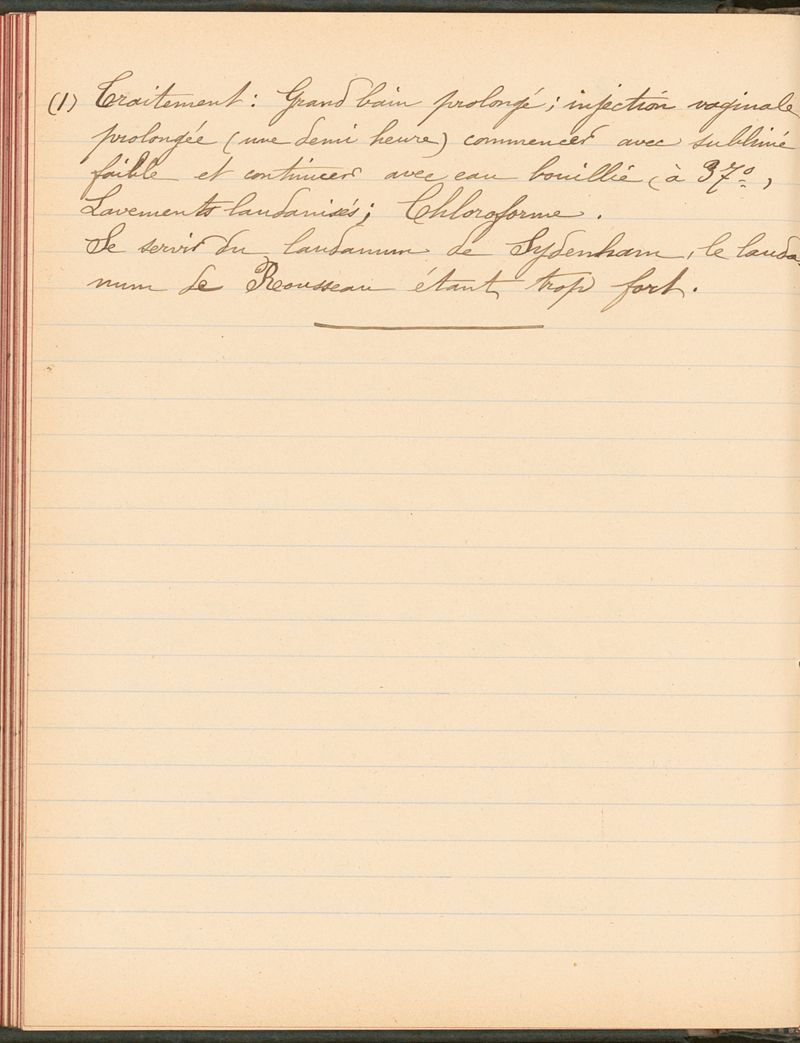 (1) Traitement: Grand bain prolongé; injection vaginale
prolongée (une demi heure) commencer avec sublimé
faible et continuer avec eau bouillie (à 37°,
Lavements laudanisés; Chloroforme.
Se servir du laudanum de Sydenham, le lauda-
num de Rousseau étant trop fort.